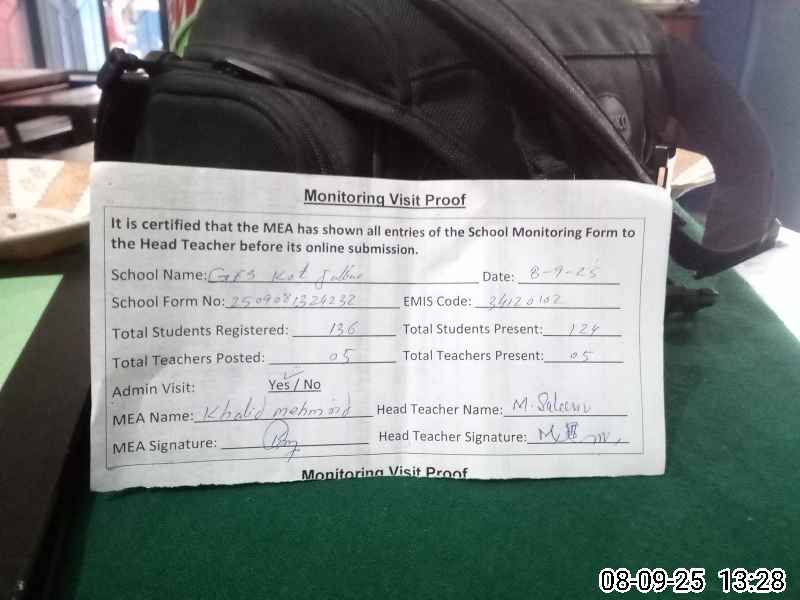 Monitoring Visit Proof
It is certified that the MEA has shown all entries of the School Monitoring Form to
the Head Teacher before its online submission.
School Name: GES Kot Date: 8-9-25
School Form No: 2509081324232 EMIS Code: 34120102
Total Students Registered: 136 Total Students Present: 124
Total Teachers Posted: 05 Total Teachers Present: 05
Admin Visit: Yes / No
MEA Name: Khalid mehmood Head Teacher Name: M. Saleem
MEA Signature: Head Teacher Signature:
Monitoring Visit Proof
08-09-25 13:28